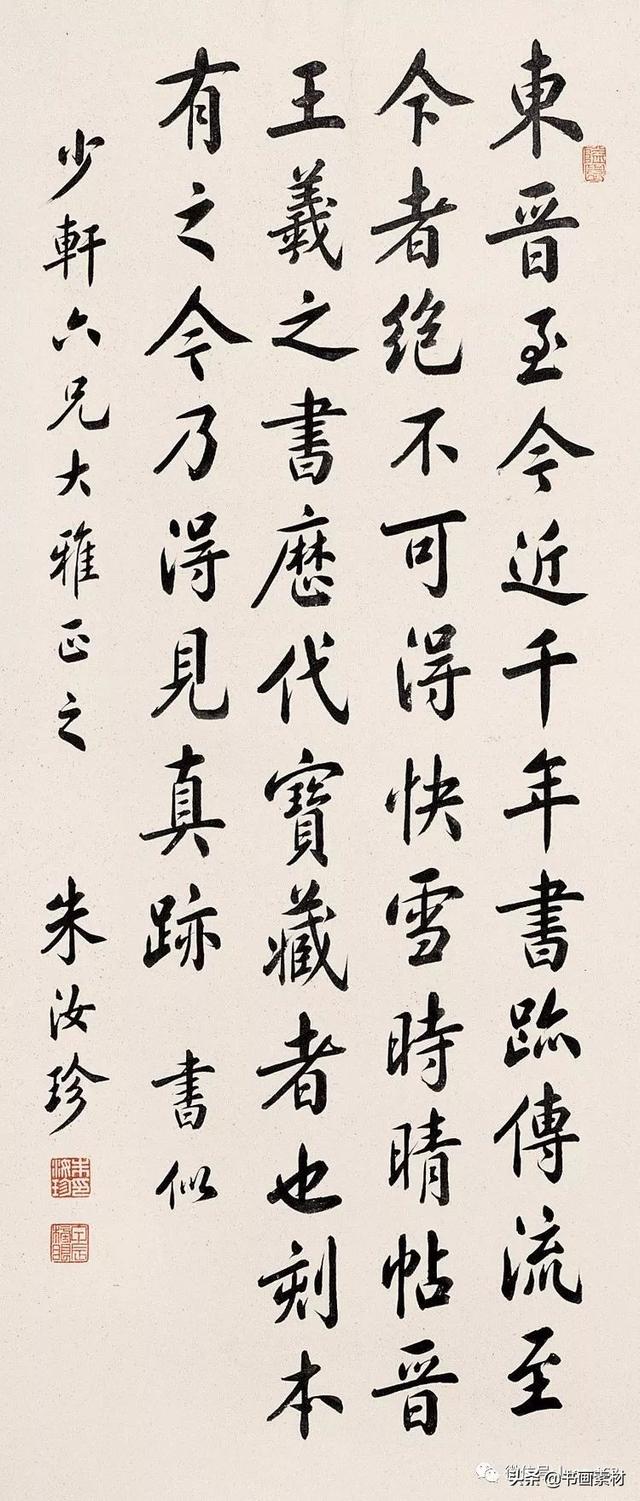 東晉至今近千年書跡傳流至
今者絕不可得快雪時晴帖晉
王羲之書歷代寶藏者也刻本
有之今乃得見真跡 書似
少軒六兄大雅正之 朱汝珍
朱汝珍
头条 @书画素材